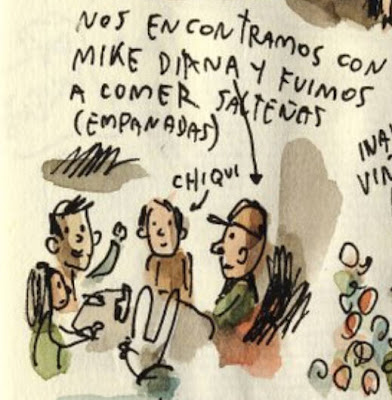 NOS ENCONTRAMOS CON
MIKE DIANA Y FUIMOS
A COMER SALTEÑAS
(EMPANADAS)
CHIQUI
INA
VIN